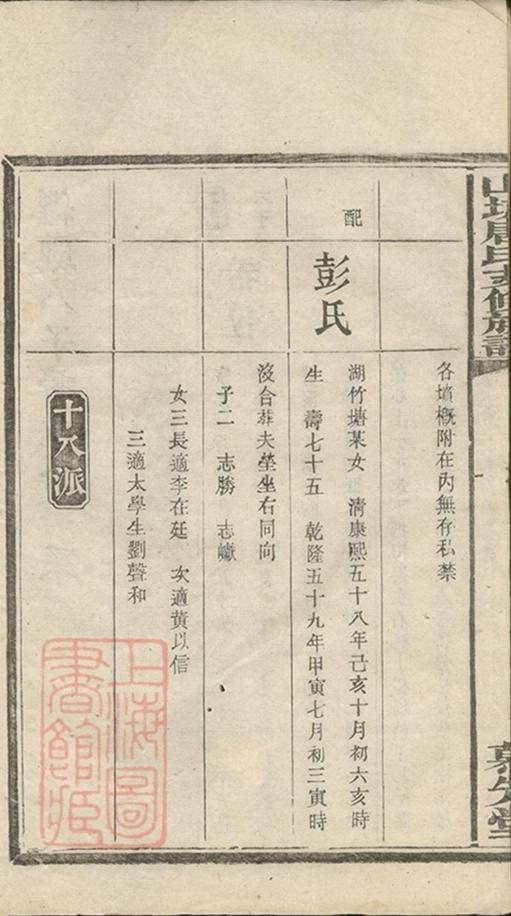 氏修族譜
慕先堂
各墳概附在內無存私禁
配
彭氏
湖竹塘某女 清康熙五十八年己亥十月初六亥時
生 壽七十五 乾隆五十九年甲寅七月初三寅時
沒合葬夫塋坐右同向
子二 志勝 志巘
女三長適李在廷 次適黃以信
三適太學生劉聲和
十八派
上海圖
書館藏